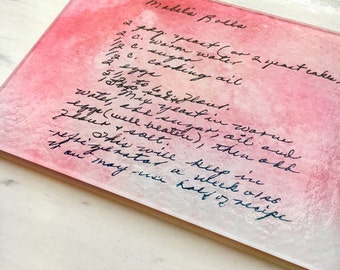 Mabel's Rolls
2 pkg. yeast (or 2 yeast cakes)
1/2 c. warm water
1/2 c. sugar
1/2 c. cooking oil
2 eggs
flour
Mix yeast in warm
water, the sugar, oil and
eggs (well beaten), then add
flour & salt.
This will keep in
refrigerator a week or so
or you may use half of recipe